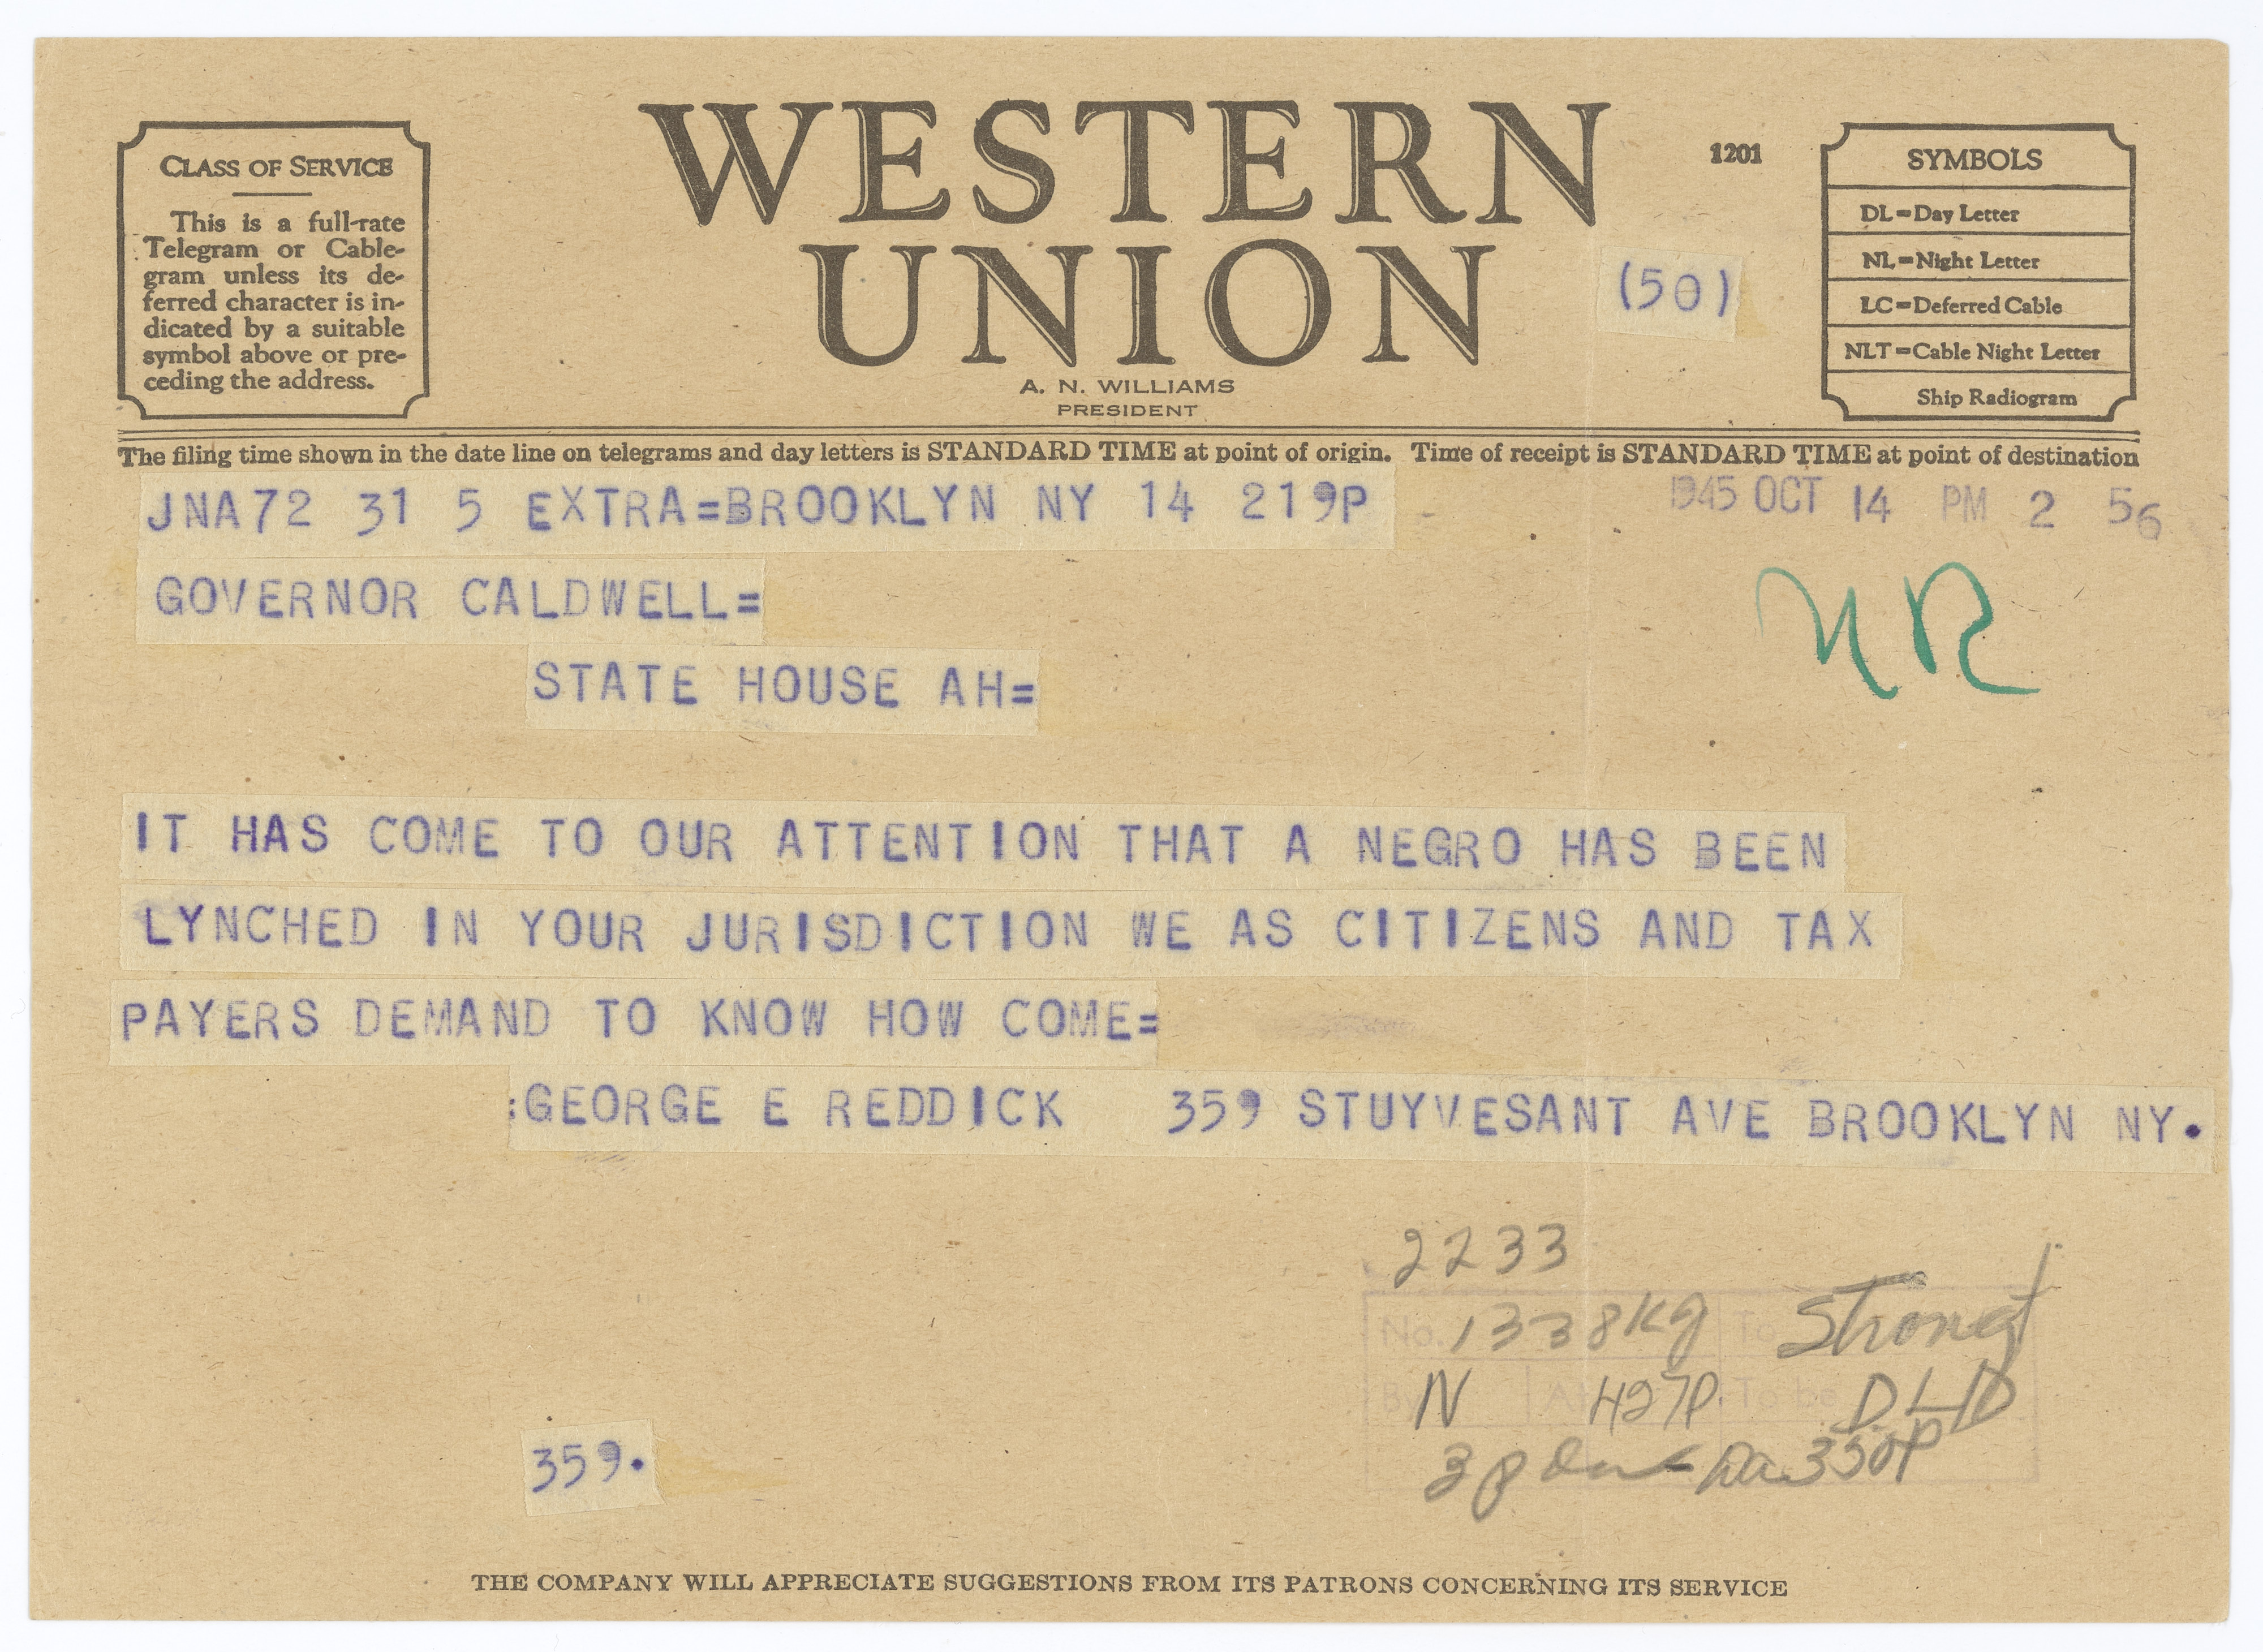 CLASS OF SERVICE
This is a full-rate
Telegram or Cable-
gram unless its de-
ferred character is in-
dicated by a suitable
symbol above or pre-
ceding the address.
WESTERN
UNION
A. N. WILLIAMS
PRESIDENT
1201
(50)
SYMBOLS
DL=Day Letter
NL=Night Letter
LC=Deferred Cable
NLT=Cable Night Letter
Ship Radiogram
The filing time shown in the date line on telegrams and day letters is STANDARD TIME at point of origin. Time of receipt is STANDARD TIME at point of destination
JNA72 31 5 EXTRA=BROOKLYN NY 14 219P
1945 OCT 14 PM 2 56
GOVERNOR CALDWELL=
STATE HOUSE AH=
NR
IT HAS COME TO OUR ATTENTION THAT A NEGRO HAS BEEN
LYNCHED IN YOUR JURISDICTION WE AS CITIZENS AND TAX
PAYERS DEMAND TO KNOW HOW COME=
:GEORGE E REDDICK 359 STUYVESANT AVE BROOKLYN NY.
2233
No. 1338Kg To Strong
By N At 427P To be DLD
350P
359.
THE COMPANY WILL APPRECIATE SUGGESTIONS FROM ITS PATRONS CONCERNING ITS SERVICE